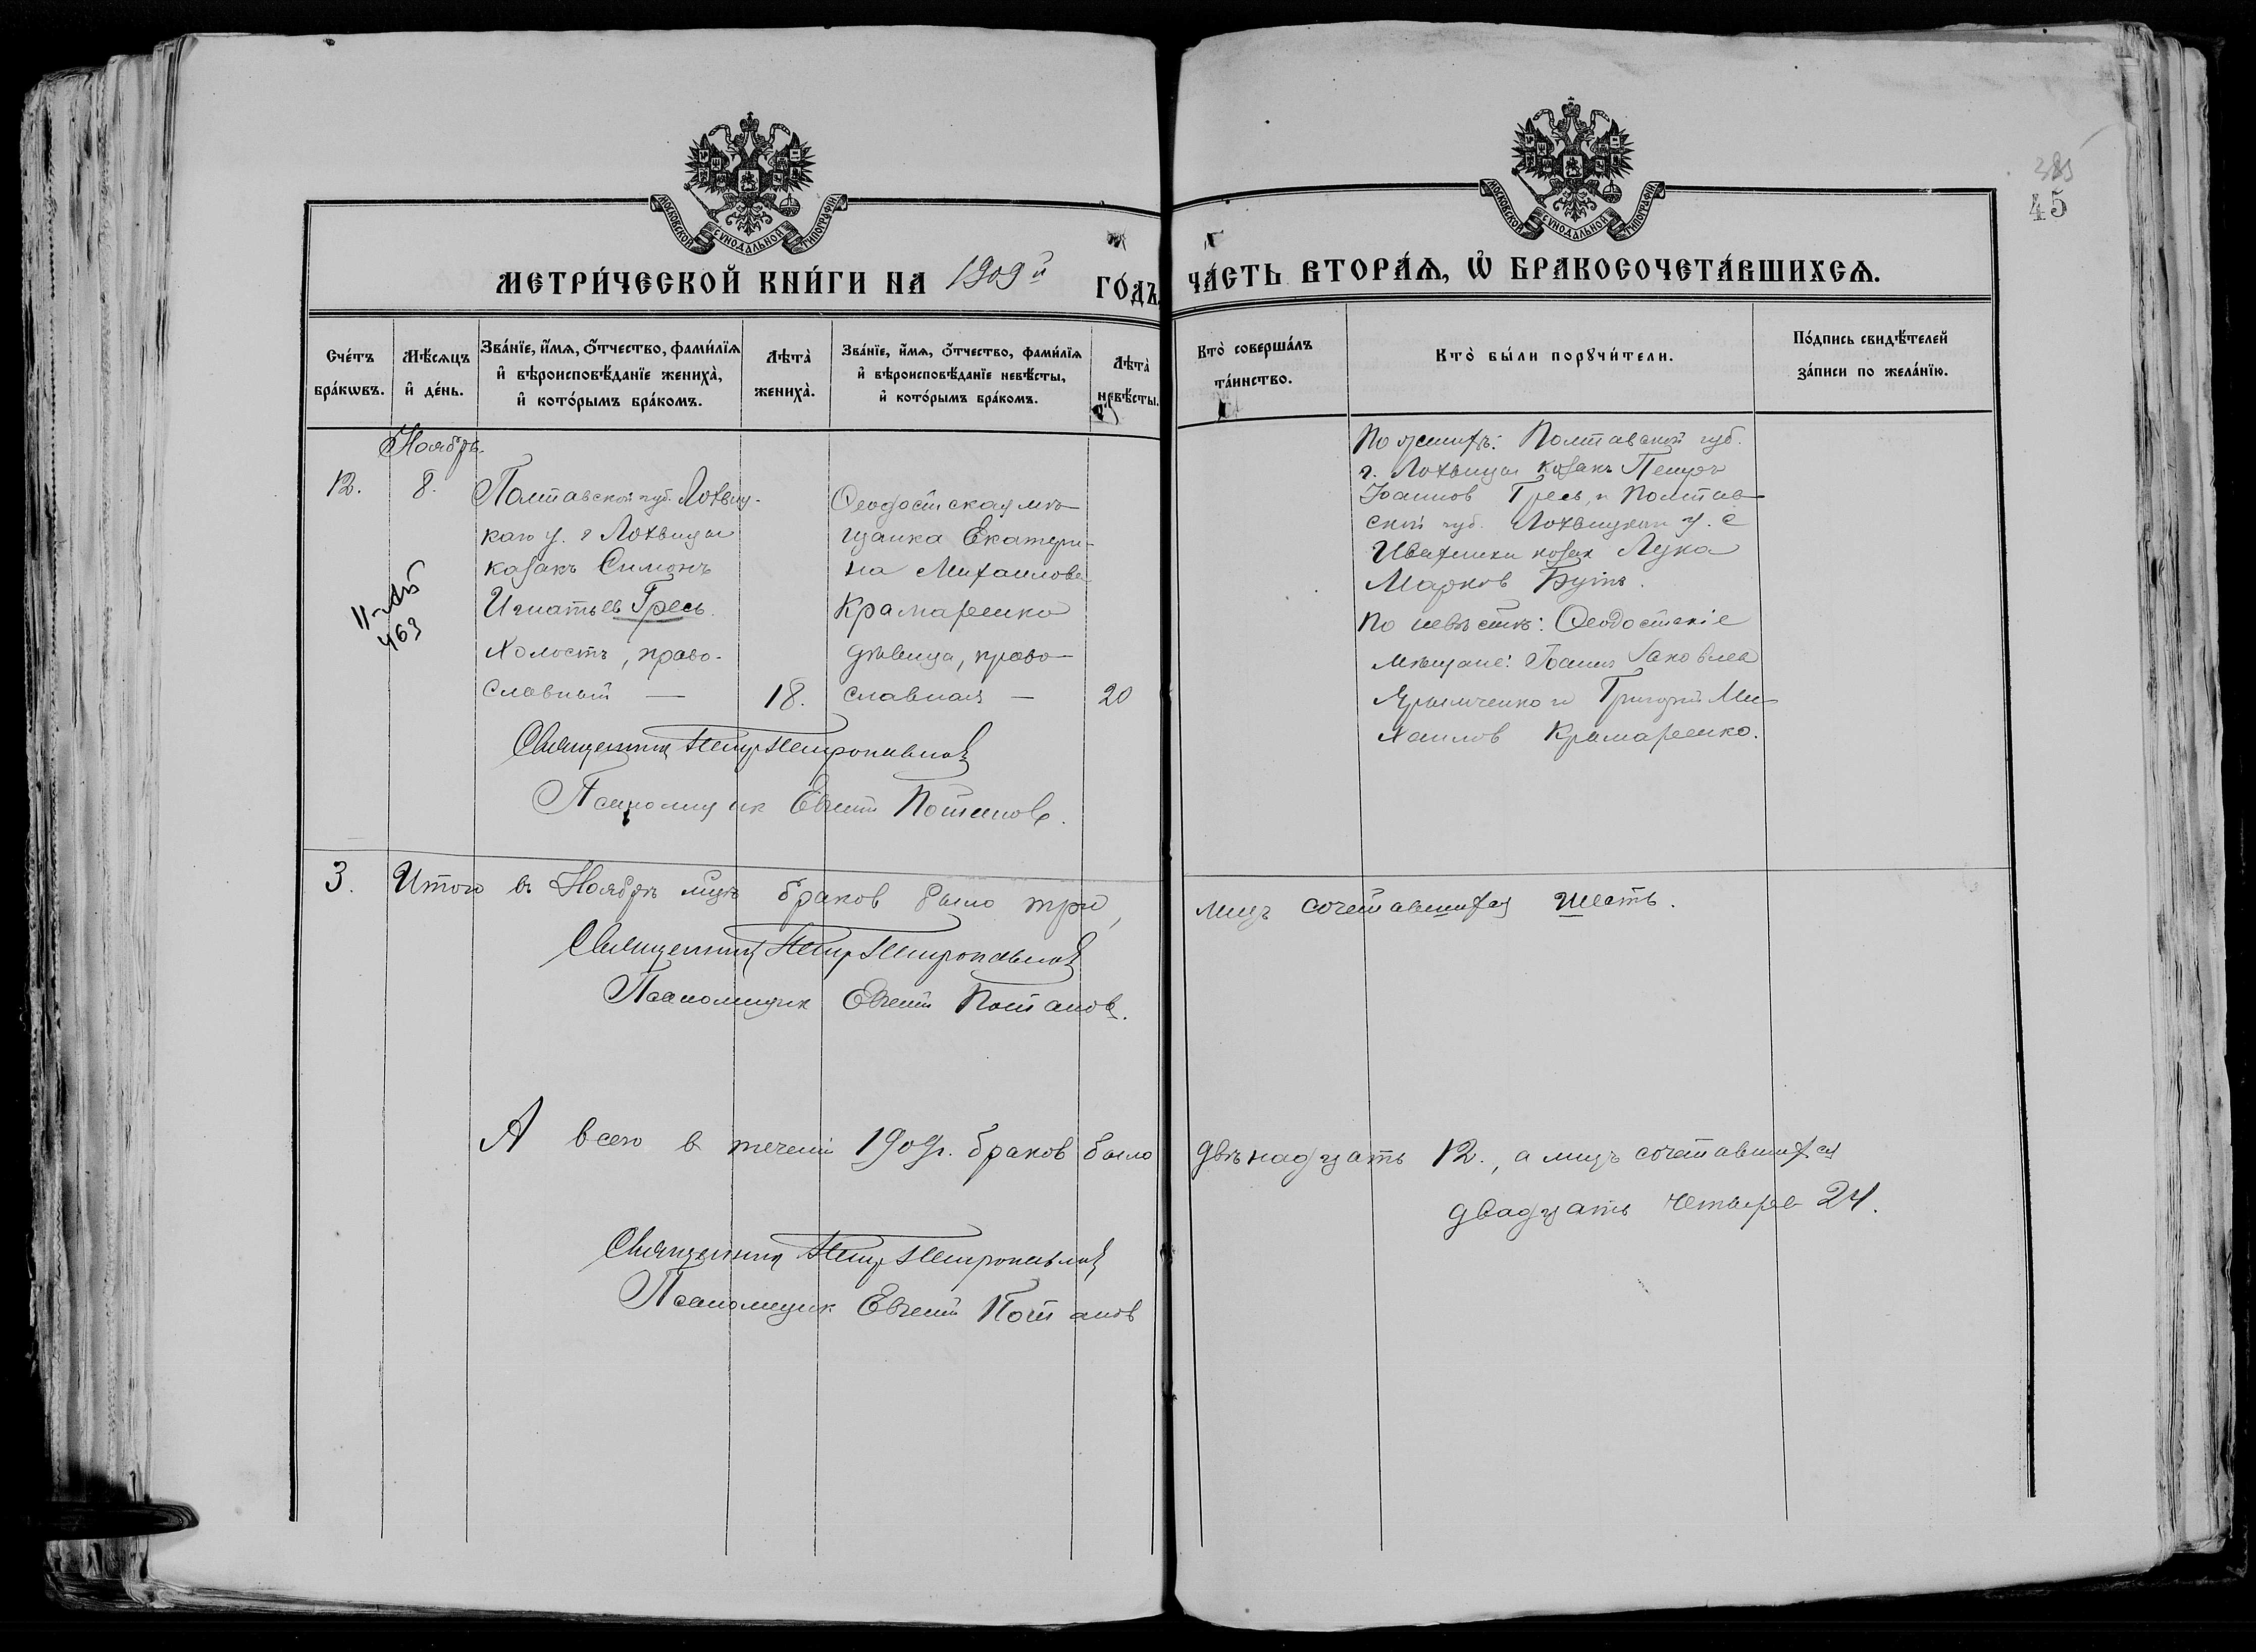 385
45
МОСКОВСКОЙ СѴНОДАЛЬНОЙ ТИПОГРАФІИ
МОСКОВСКОЙ СѴНОДАЛЬНОЙ ТИПОГРАФІИ
МЕТРИ́ЧЕСКОЙ КНИ́ГИ НА 1909й ГО́ДЪ,
ЧА́СТЬ ВТОРА́Ѧ, Ѡ҆ БРАКОСОЧЕТА́ВШИХСѦ.
Сче́тъ бра́кѡвъ.
Мѣ́сѧцъ и҆ де́нь.
Зва́нїе, и҆́мѧ, ѻ҆́тчество, фами́лїѧ и҆ вѣроисповѣ́данїе жениха̀, и҆ кото́рымъ бра́комъ.
Лѣта̀ жениха̀.
Зва́нїе, и҆́мѧ, ѻ҆́тчество, фами́лїѧ и҆ вѣроисповѣ́данїе невѣ́сты, и҆ кото́рымъ бра́комъ.
Лѣта̀ невѣ́сты.
Кто̀ соверша́лъ та́инство.
Кто̀ бы́ли порꙋчи́тели.
По́дпись свидѣ́телей за́писи по жела́нїю.
Ноябрь.
12.
8.
Полтавской губ. Лохвиц-
каго у. г Лохвицы
козакъ Симонъ
Игнатьев Гресь.
Холостъ, право-
славный —
18.
Ѳеодосійская мѣ-
щанка Екатери-
на Михаилова
Крамаренко
дѣвица, право-
славная —
20
463
По женихѣ: Полтавской губ.
г. Лохвицы козакъ Петръ
Іоаннов Гресь, и Полтав-
ской губ. Лохвицкаго у. с
Ивахники козак Лука
Марков Бутъ.
По невѣстѣ: Ѳеодосійскіе
мѣщане: Іоаннъ Іаковлев
Ярымченко и Григорій Ми-
хаилов Крамаренко.
Священник Петр Петропавлов
Псаломщик Евгеній Потапов.
3. Итого въ Ноябрѣ мцѣ браков было три,
лицъ сочетавшихся шесть.
Священник Петр Петропавлов
Псаломщик Евгеній Потапов.
А всего в теченіи 1909г. браков было
двѣнадцать 12., а лицъ сочетавшихся
двадцать четыре 24.
Священник Петр Петропавлов
Псаломщик Евгеній Потапов